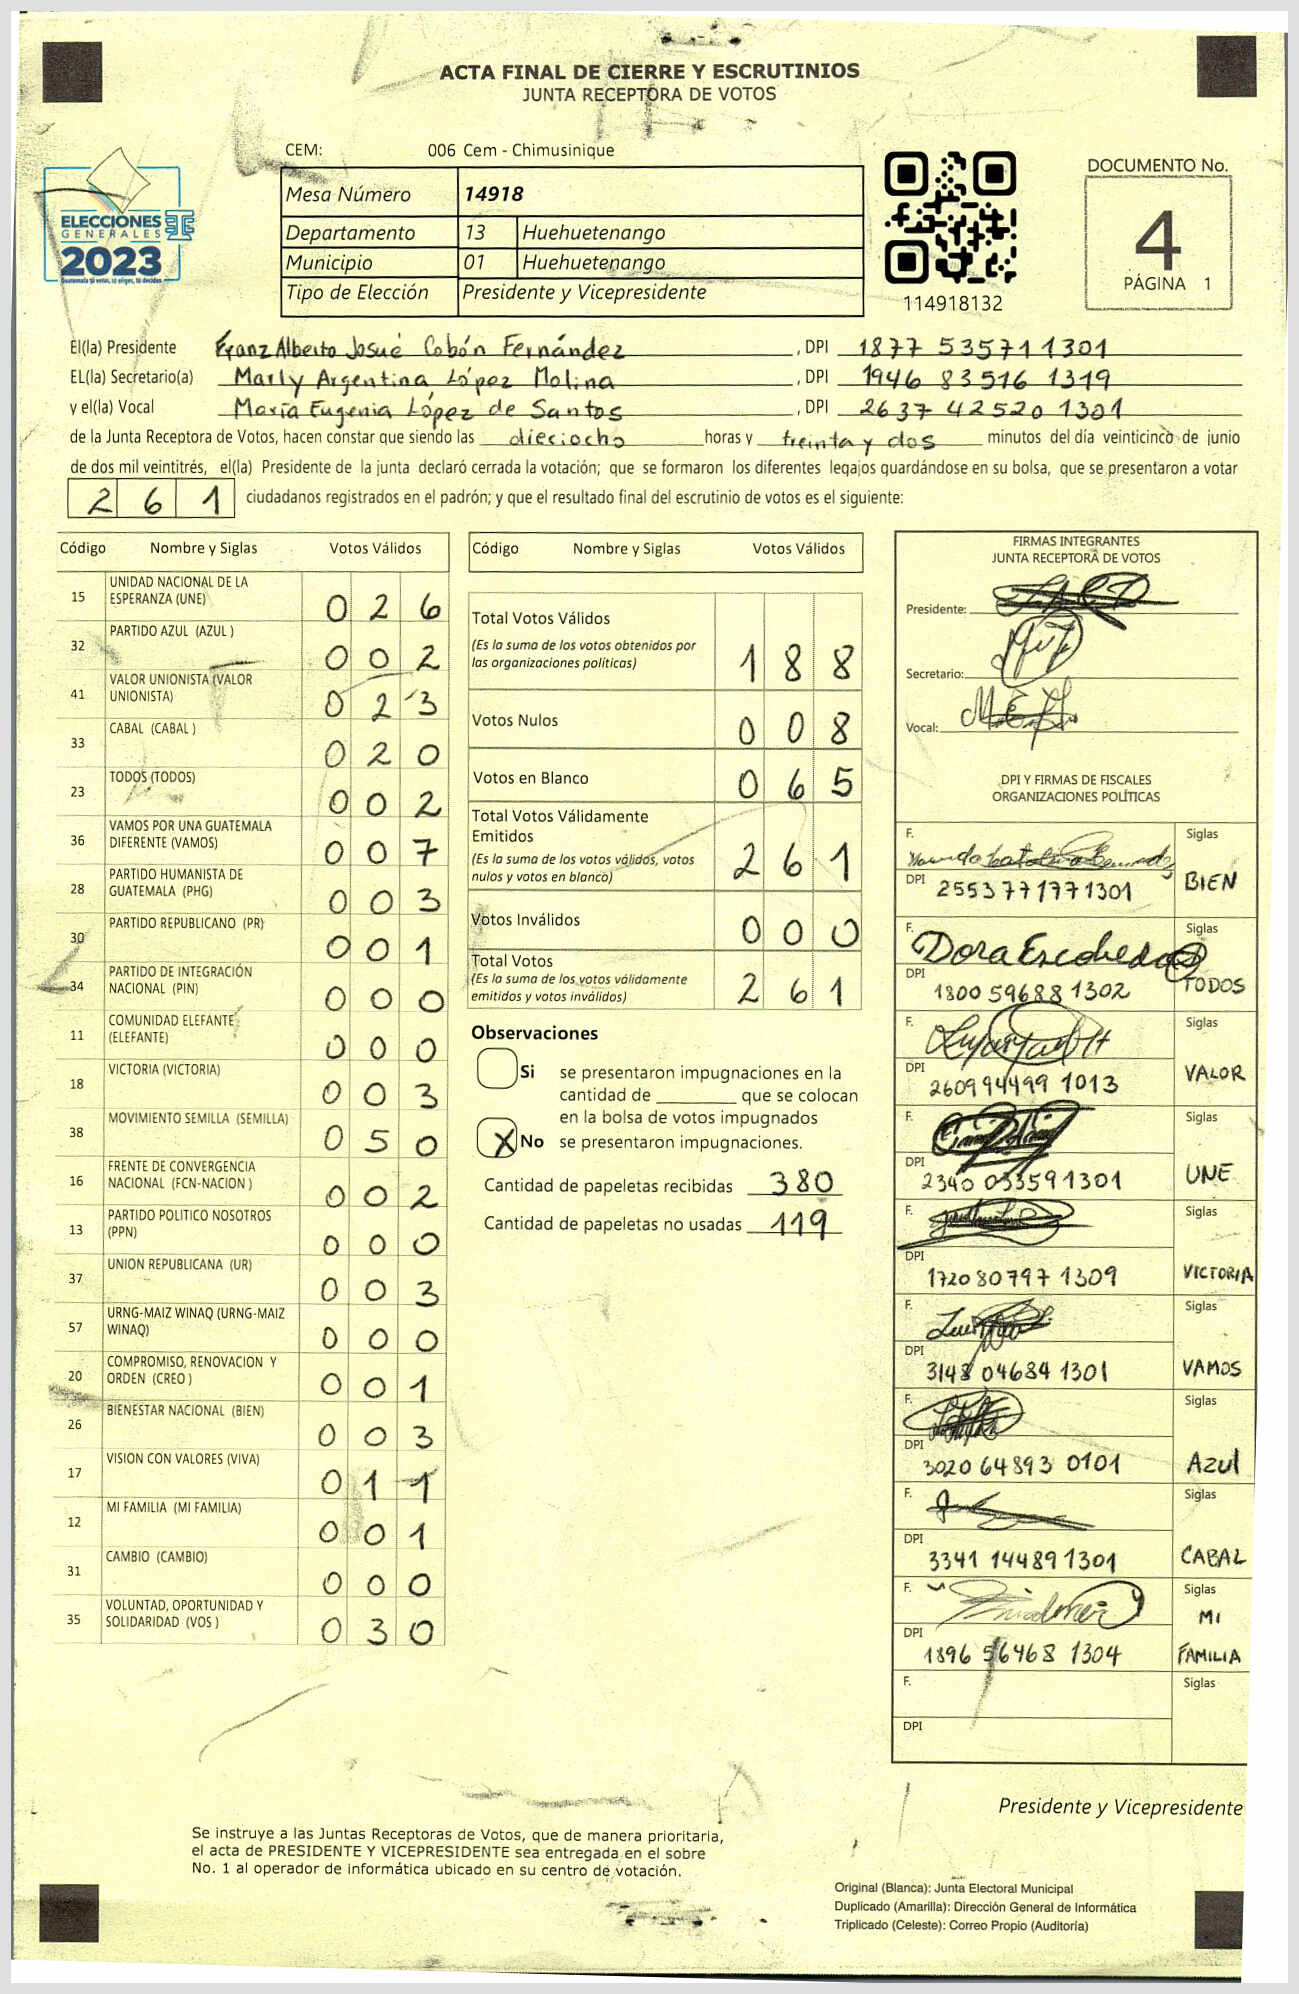 ACTA FINAL DE CIERRE Y ESCRUTINIOS
JUNTA RECEPTORA DE VOTOS
CEM: 006 Cem - Chimusinique
Mesa Número 14918
Departamento 13 Huehuetenango
Municipio 01 Huehuetenango
Tipo de Elección Presidente y Vicepresidente
ELECCIONES
GENERALES
2023
Guatemala te veo, tú eliges, tú decides
114918132
DOCUMENTO No.
4
PÁGINA 1
El(la) Presidente Franz Alberto Josué Cobón Fernández, DPI 1877 53571 1301
EL(la) Secretario(a) Marly Argentina López Molina, DPI 1946 83516 1319
y el(la) Vocal María Eugenia López de Santos, DPI 2637 42520 1301
de la Junta Receptora de Votos, hacen constar que siendo las dieciocho horas y treinta y dos minutos del día veinticinco de junio
de dos mil veintitrés, el(la) Presidente de la junta declaró cerrada la votación; que se formaron los diferentes legajos guardándose en su bolsa, que se presentaron a votar
261 ciudadanos registrados en el padrón; y que el resultado final del escrutinio de votos es el siguiente:
Código Nombre y Siglas Votos Válidos
15 UNIDAD NACIONAL DE LA ESPERANZA (UNE) 026
32 PARTIDO AZUL (AZUL ) 002
41 VALOR UNIONISTA (VALOR UNIONISTA) 023
33 CABAL (CABAL ) 020
23 TODOS (TODOS) 002
36 VAMOS POR UNA GUATEMALA DIFERENTE (VAMOS) 007
28 PARTIDO HUMANISTA DE GUATEMALA (PHG) 003
30 PARTIDO REPUBLICANO (PR) 001
34 PARTIDO DE INTEGRACIÓN NACIONAL (PIN) 000
11 COMUNIDAD ELEFANTE (ELEFANTE) 000
18 VICTORIA (VICTORIA) 003
38 MOVIMIENTO SEMILLA (SEMILLA) 050
16 FRENTE DE CONVERGENCIA NACIONAL (FCN-NACION ) 002
13 PARTIDO POLITICO NOSOTROS (PPN) 000
37 UNION REPUBLICANA (UR) 003
57 URNG-MAIZ WINAQ (URNG-MAIZ WINAQ) 000
20 COMPROMISO, RENOVACION Y ORDEN (CREO ) 001
26 BIENESTAR NACIONAL (BIEN) 003
17 VISION CON VALORES (VIVA) 011
12 MI FAMILIA (MI FAMILIA) 001
31 CAMBIO (CAMBIO) 000
35 VOLUNTAD, OPORTUNIDAD Y SOLIDARIDAD (VOS ) 030
Código Nombre y Siglas Votos Válidos
Total Votos Válidos 188
(Es la suma de los votos obtenidos por
las organizaciones políticas)
Votos Nulos 008
Votos en Blanco 065
Total Votos Válidamente
Emitidos 261
(Es la suma de los votos válidos, votos
nulos y votos en blanco)
Votos Inválidos 000
Total Votos 261
(Es la suma de los votos válidamente
emitidos y votos inválidos)
Observaciones
Si se presentaron impugnaciones en la
cantidad de ________ que se colocan
en la bolsa de votos impugnados
X No se presentaron impugnaciones.
Cantidad de papeletas recibidas 380
Cantidad de papeletas no usadas 119
FIRMAS INTEGRANTES
JUNTA RECEPTORA DE VOTOS
Presidente:
Secretario:
Vocal:
DPI Y FIRMAS DE FISCALES
ORGANIZACIONES POLÍTICAS
F. Siglas
DPI 2553 77177 1301 BIEN
F. Dora Escobedo Siglas
DPI 1800 59688 1302 TODOS
F. Siglas
DPI 2609 94499 1013 VALOR
F. Siglas
DPI 2340 03359 1301 UNE
F. Siglas
DPI 1720 80797 1309 VICTORIA
F. Siglas
DPI 3148 04684 1301 VAMOS
F. Siglas
DPI 3020 64893 0101 Azul
F. Siglas
DPI 3341 14489 1301 CABAL
F. Siglas
DPI 1896 56468 1304 MI FAMILIA
F. Siglas
DPI
Presidente y Vicepresidente
Se instruye a las Juntas Receptoras de Votos, que de manera prioritaria,
el acta de PRESIDENTE Y VICEPRESIDENTE sea entregada en el sobre
No. 1 al operador de informática ubicado en su centro de votación.
Original (Blanca): Junta Electoral Municipal
Duplicado (Amarilla): Dirección General de Informática
Triplicado (Celeste): Correo Propio (Auditoría)